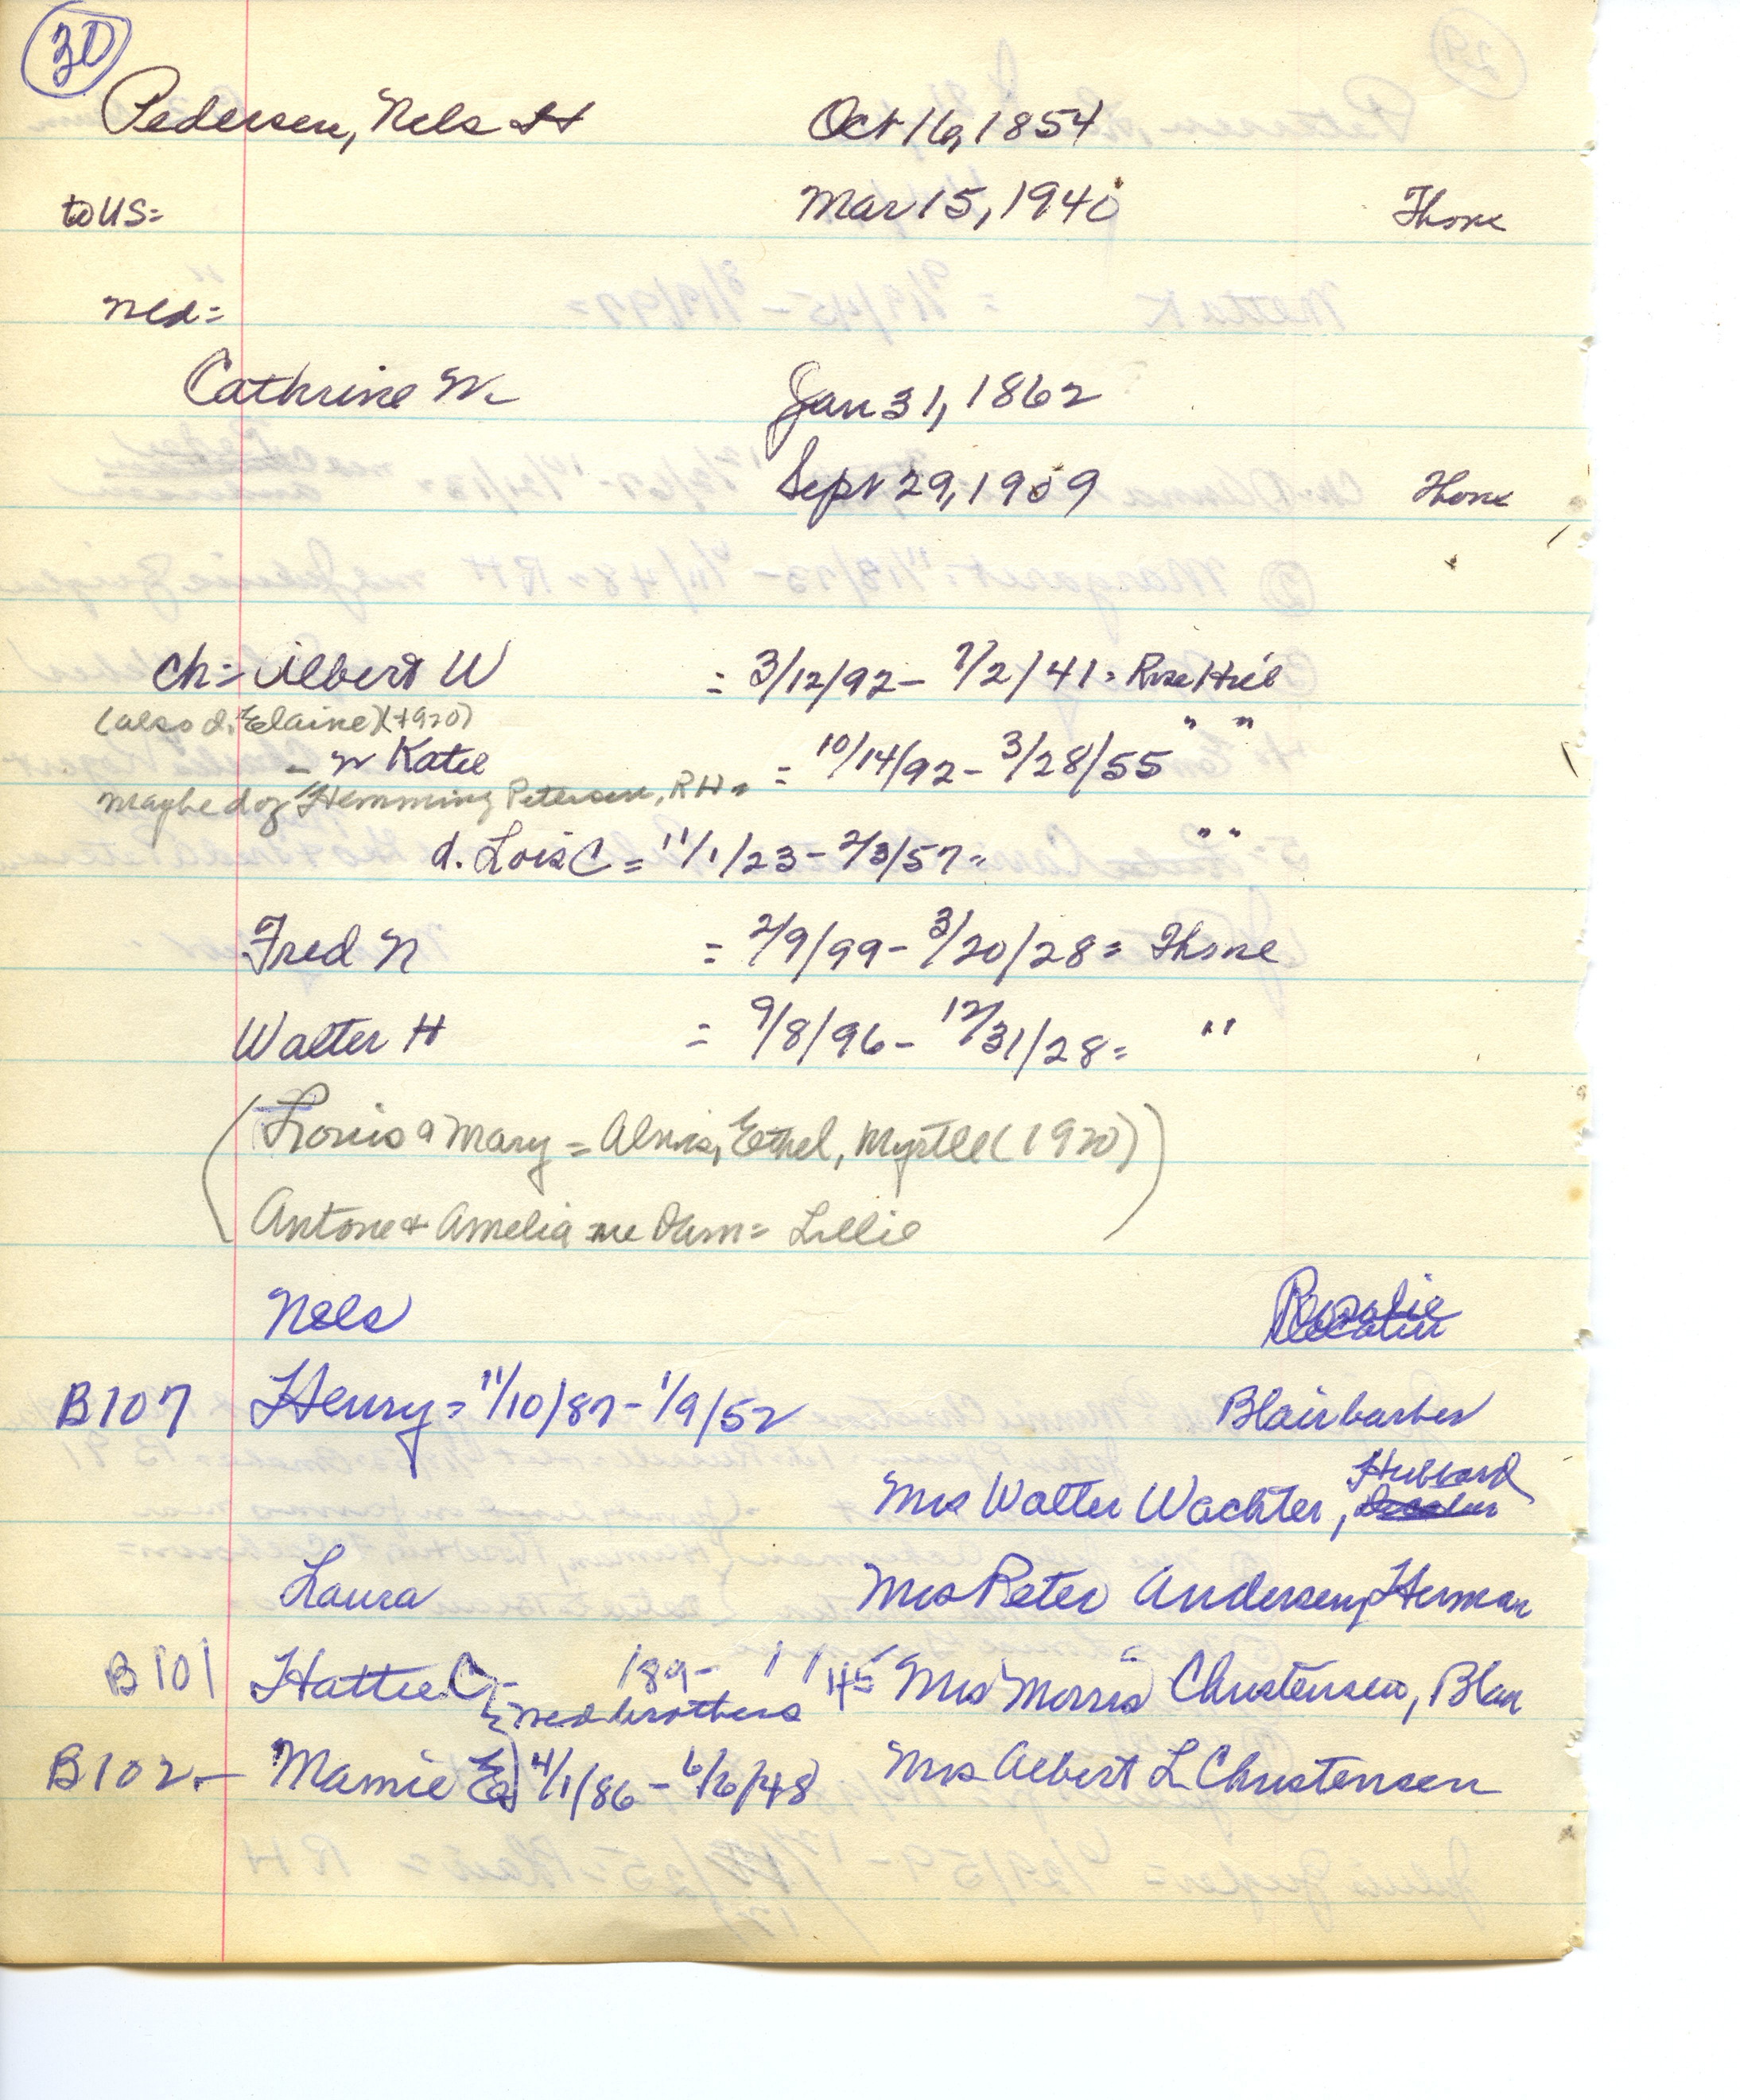 30
Pedersen, Nels H Oct 16, 1854
to US= Mar 15, 1940 Thone
med=
Cathrine W. Jan 31, 1862
Sept 29, 1909 Thone
Ch= Albert W = 3/12/92- 7/2/41= Rose Hill
(also d. Elaine)(+920) " "
- w Katie = 10/14/92- 3/28/55
maybe d of Hemming Petersen, RH=
d. Lois C = 11/1/23- 2/3/57= " "
Fred N = 2/9/99- 3/20/28= Thone
Walter H = 9/8/96- 12/31/28= "
(Louis & Mary = Ethel, Myrtle (1920)
Antone & Amelia = Lillie)
Nels
B107 Henry= 11/10/87- 1/9/52 Blair barber
Hubbard
Mrs Walter Wachter,
Laura Mrs Peter Andersen, Herman
B101 Hattie C- /89- / /45 Mrs Morris Christensen, Blair
med brothers
B102- Mamie E 4/1/86- 6/6/48 Mrs Albert L Christensen